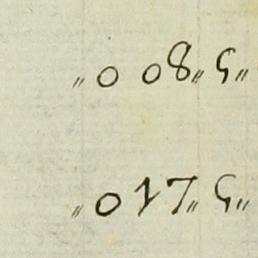 „ 0 08 „ 5 „
„ 0 17 „ 5 „